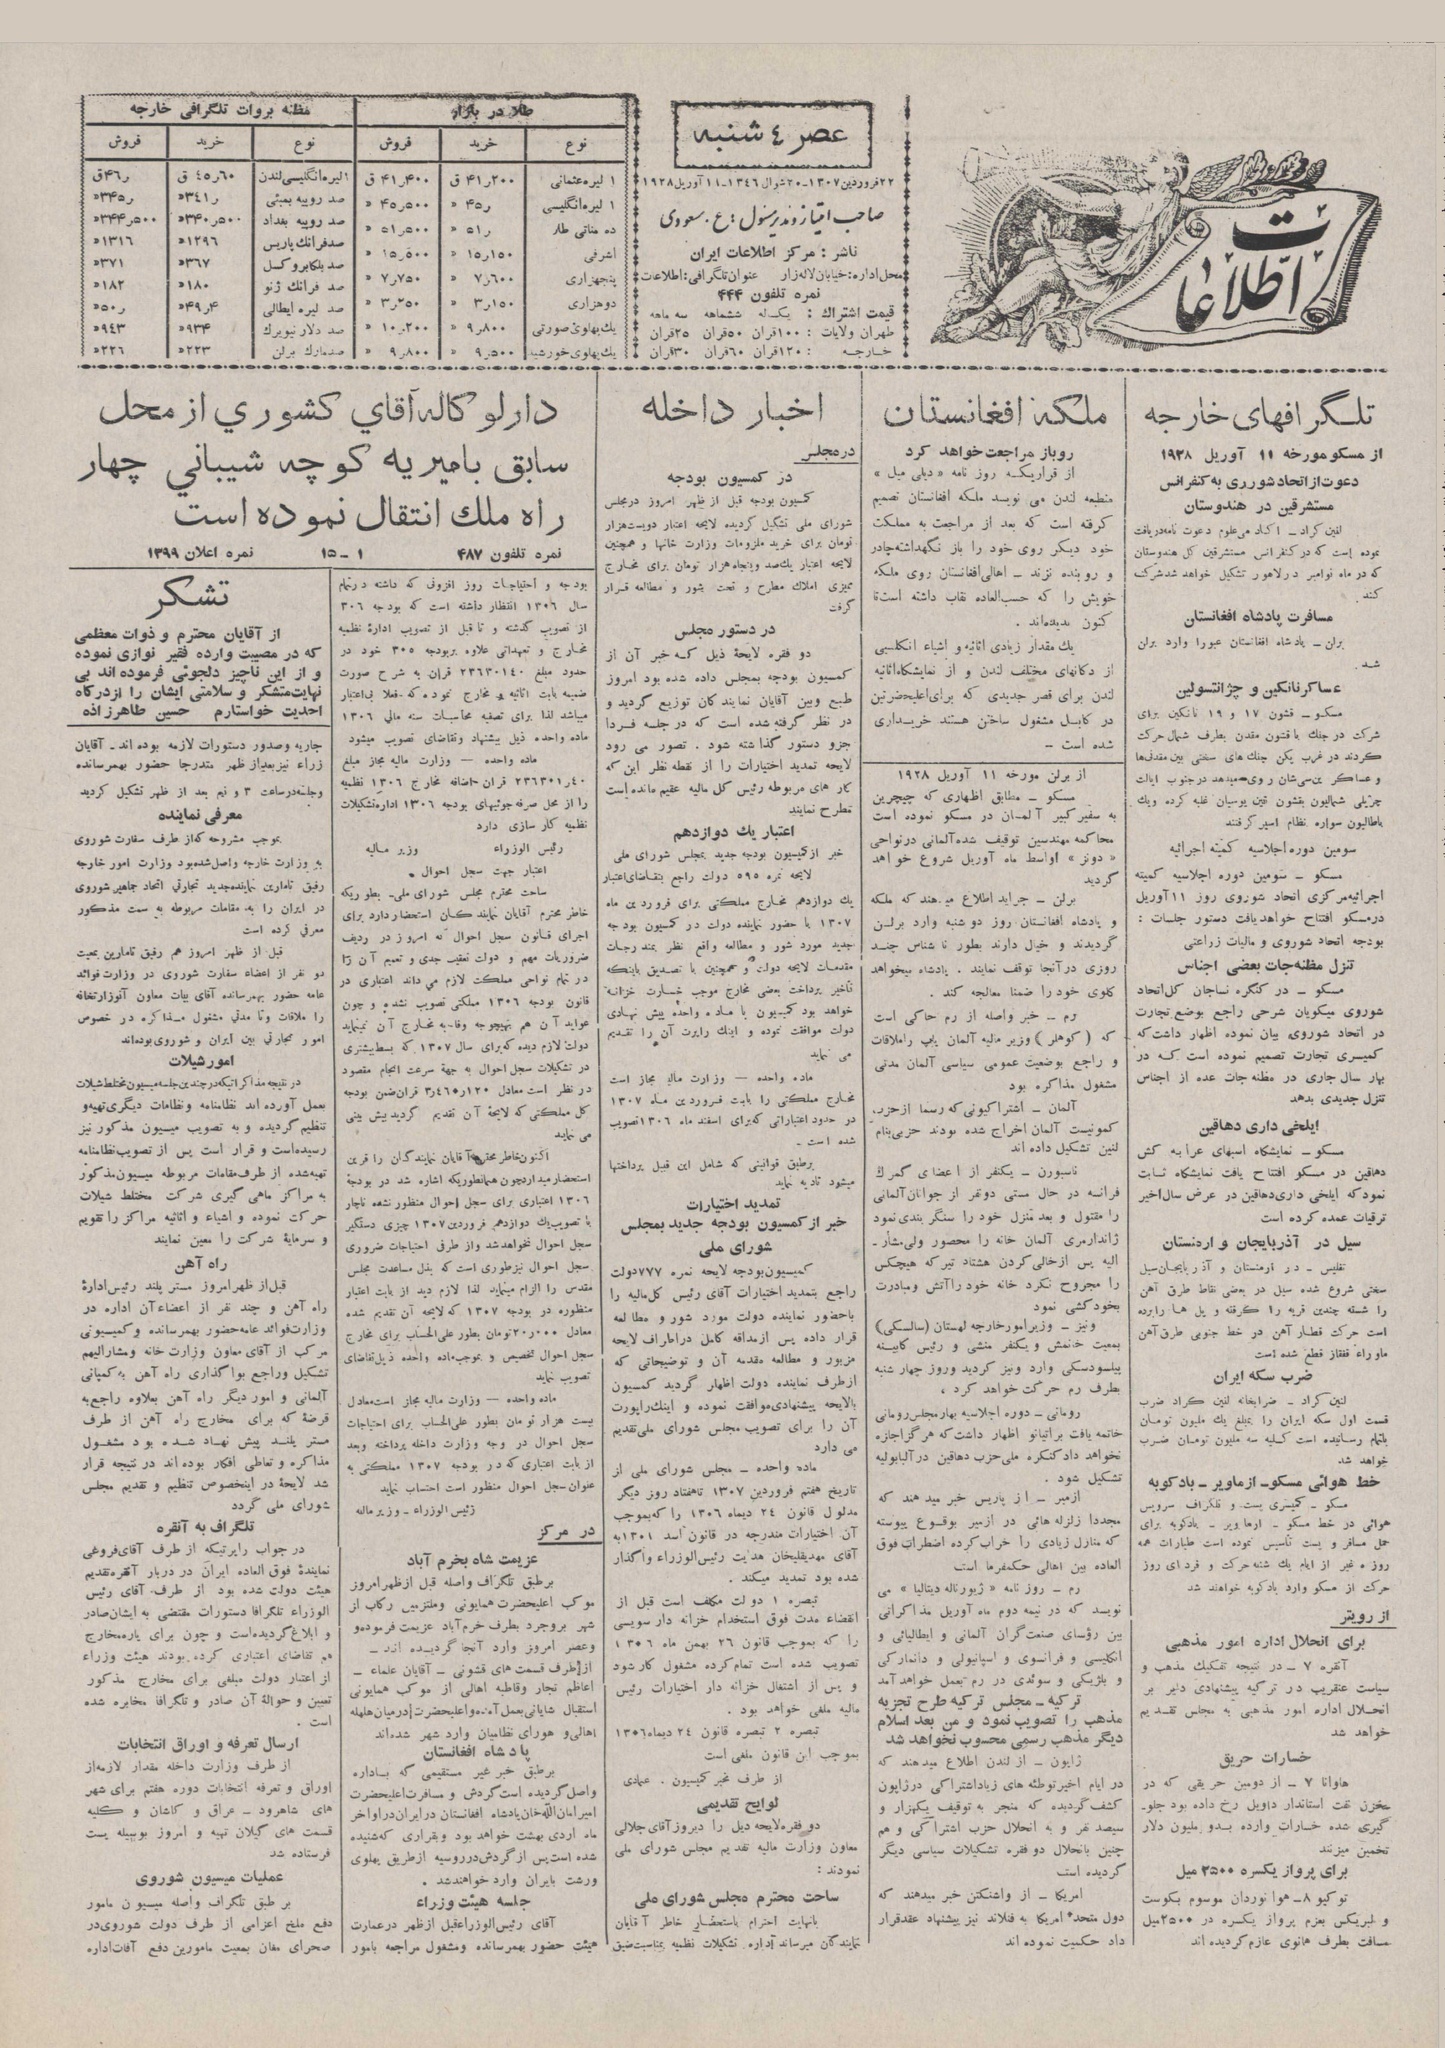 اطلاعات
عصر ٤ شنبه
۲۲فروردین۱۳۰۷-۲۰شوال ۱۳٤۶-۱۱آوریل۱۹۲۸
صاحب امتیاز و مدیر مسئول : ع . مسعودی
ناشر : مرکز اطلاعات ایران
محل اداره : خیابان لاله‌زار عنوان تلگرافی : اطلاعات
نمره تلفون ۴۴۴
قیمت اشتراك : یکساله ششماهه سه ماهه
طهران ولایات : ۱۰۰قران ۵۰قران ۲۵قران
خارجه : ۱۲۰قران ۶۰قران ۳۰قران
طلا در بازار
نوع خرید فروش
۱ لیره عثمانی ۴۱٫۲۰۰ ق ۴۱٫۴۰۰ ق
۱ لیره انگلیسی ۴۵٫ « ۴۵٫۵۰۰ «
ده مناتی طلا ۵۱٫ « ۵۱٫۵۰۰ «
اشرفی ۱۵٫۱۵۰ « ۱۵٫۵۰۰ «
پنجهزاری ۷٫۶۰۰ « ۷٫۷۵۰ «
دوهزاری ۳٫۱۵۰ « ۳٫۲۵۰ «
یك پهلوی صورتی ۹٫۸۰۰ « ۱۰٫۲۰۰ «
یك پهلوی خورشید ۹٫۵۰۰ « ۹٫۸۰۰ «
مظنه بروات تلگرافی خارجه
نوع خرید فروش
۱لیره انگلیسی لندن ۴۵٫۶۰ ق ۴۶٫ ق
صد روپیه بمبئی ۳۴۱٫« ۳۴۵٫«
صد روپیه بغداد ۳۴۰٫۵۰۰« ۳۴۴٫۵۰۰«
صدفرانك پاریس ۱۲۹۶« ۱۳۱۶«
صد بلکابروکسل ۳۶۷« ۳۷۱«
صد فرانك ژنو ۱۸۰« ۱۸۲«
صد لیره ایطالی ۴۹٫۴« ۵۰٫«
صد دلار نیویرك ۹۳۴« ۹۴۳«
صدمارك برلن ۲۲۳« ۲۲۶«
تلگرافهای خارجه
از مسکو مورخه ۱۱ آوریل ۱۹۲۸
دعوت از اتحاد شوروی به کنفرانس
مستشرقین در هندوستان
لنین گراد ـ آکادمی علوم دعوت نامه دریافت
نموده است که در کنفرانس مستشرقین کل هندوستان
که در ماه نوامبر در لاهور تشکیل خواهد شد شرکت
کند
مسافرت پادشاه افغانستان
برلن ـ پادشاه افغانستان عبورا وارد برلن
شد
عساکر نانکین و چژانتسولین
مسکو ـ قشون ۱۷ و ۱۹ نانکین برای
شرکت در جنك با قشون مقدن بطرف شمال حرکت
سومین دوره اجلاسیه کمیته اجرائیه
مسکو ـ سومین دوره اجلاسیه کمیته
اجرائیه مرکزی اتحاد شوروی روز ۱۱آوریل
درمسکو افتتاح خواهد یافت دستور جلسات :
بودجه اتحاد شوروی و مالیات زراعتی
تنزل مظنه‌جات بعضی اجناس
مسکو ـ در کنگره نساجان کل اتحاد
شوروی میکویان شرحی راجع بوضع تجارت
در اتحاد شوروی بیان نموده اظهار داشت که
کمیسری تجارت تصمیم نموده است که در
بهار سال جاری در مظنه جات عده از اجناس
تنزل جدیدی بدهد
ایلخی داری دهاقین
مسکو ـ نمایشگاه اسبهای عرابه کش
دهاقین در مسکو افتتاح یافت نمایشگاه ثابت
نمود که ایلخی داری دهاقین در عرض سال اخیر
ترقیات عمده کرده است
سیل در آذربایجان و ارمنستان
تفلیس ـ در ارمنستان و آذربایجان سیل
سختی شروع شده سیل در بعضی نقاط طرق آهن
را شسته چندین قریه را گرفته و پل ها را برده
است حرکت قطار آهن در خط جنوبی طرق آهن
ماوراء قفقاز قطع شده است
ضرب سکه ایران
لنین گراد ـ ضرابخانه لنین گراد ضرب
قسمت اول سکه ایران را بمبلغ یك ملیون تومان
باتمام رسانیده است کلیه سه ملیون تومان ضرب
خواهد شد
خط هوائی مسکو ـ ازماویر ـ بادکوبه
مسکو ـ کمیسری پست و تلگراف سرویس
هوائی در خط مسکو ـ ارماویر ـ بادکوبه برای
حمل مسافر و پست تأسیس نموده است طیارات همه
روزه غیر از ایام یك شنبه حرکت و فردای روز
حرکت از مسکو وارد بادکوبه خواهند شد
از رویتر
برای انحلال اداره امور مذهبی
آنقره ۷ ـ در نتیجه تفکیك مذهب و
سیاست عنقریب در ترکیه پیشنهادی دایر بر
انحلال اداره امور مذهبی به مجلس تقدیم
خواهد شد
خسارات حریق
هاوانا ۷ ـ از دومین حریقی که در
مخزن نفت استاندار داویل رخ داده بود جلو ـ
گیری شده خسارات وارده بدو ملیون دلار
تخمین میزنند
برای پرواز یکسره ۲۵۰۰ میل
توکیو ۸ ـ هوا نوردان موسوم بکوست
و لمبریکس بعزم پرواز یکسره در ۲۵۰۰میل
مسافت بطرف هانوی عازم گردیده اند
ملکه افغانستان
روباز مراجعت خواهد کرد
از قراریکه روز نامه « دیلی میل »
منطبعه لندن می نویسد ملکه افغانستان تصمیم
گرفته است که بعد از مراجعت به مملکت
خود دیگر روی خود را باز نگهداشته چادر
و روبنده نزند ـ اهالی افغانستان روی ملکه
خویش را که حسب‌العاده نقاب داشته است تا
کنون ندیده‌اند .
یك مقدار زیادی اثاثیه و اشیاء انگلیسی
از دکانهای مختلف لندن و از نمایشگاه اثاثیه
لندن برای قصر جدیدی که برای اعلیحضرتین
در کابل مشغول ساختن هستند خریداری
شده است ـ
از برلن مورخه ۱۱ آوریل ۱۹۲۸
مسکو ـ مطابق اظهاری که چیچرین
به سفیر کبیر آلمان در مسکو نموده است
محاکمه مهندسین توقیف شده آلمانی در نواحی
« دونز » اواسط ماه آوریل شروع خواهد
گردید
برلن ـ جراید اطلاع میدهند که ملکه
و پادشاه افغانستان روز دو شنبه وارد برلن
گردیدند و خیال دارند بطور ناشناس چند
روزی در آنجا توقف نمایند . پادشاه میخواهد
گلوی خود را ضمنا معالجه کند .
رم ـ خبر واصله از رم حاکی است
که ( کوهلر ) وزیر مالیه آلمان پاپ را ملاقات
و راجع بوضعیت عمومی سیاسی آلمان مدتی
مشغول مذاکره بود
آلمان ـ اشتراکیونی که رسما از حزب
کمونیست آلمان اخراج شده بودند حزبی بنام
لنین تشکیل داده اند
ناسبورن ـ یکنفر از اعضای گمرك
فرانسه در حال مستی دو نفر از جوانان آلمانی
را مقتول و بعد منزل خود را سنگر بندی نمود
ژاندارمری آلمان خانه را محصور ولی مشار ـ
الیه پس از خالی کردن هشتاد تیر که هیچکس
را مجروح نکرد خانه خود را آتش و مبادرت
بخودکشی نمود
ونیز ـ وزیر امور خارجه لهستان (سالسکی)
بمعیت خانمش و یکنفر منشی و رئیس کابینه
پیلسودسکی وارد ونیز گردید و روز چهار شنبه
بطرف رم حرکت خواهد کرد ،
رومانی ـ دوره اجلاسیه بهار مجلس رومانی
خاتمه یافت براتیانو اظهار داشت که هرگز اجازه
نخواهد داد کنگره ملی حزب دهاقین در آلبایولیه
تشکیل شود .
ازمیر ـ از پاریس خبر میدهند که
مجددا زلزله هائی در ازمیر بوقوع پیوسته
که منازل زیادی را خراب کرده اضطراب فوق
العاده بین اهالی حکمفرما است
رم ـ روز نامه « ژیورناله دیتالیا » می
نویسد که در نیمه دوم ماه آوریل مذاکراتی
بین رؤسای صنعت گران آلمانی و ایطالیائی و
انگلیسی و فرانسوی و اسپانیولی و دانمارکی
و بلژیکی و سوئدی در رم بعمل خواهد آمد
ترکیه ـ مجلس ترکیه طرح تجزیه
مذهب را تصویب نمود و من بعد اسلام
دیگر مذهب رسمی محسوب نخواهد شد
ژاپون ـ از لندن اطلاع میدهند که
در ایام اخیر توطئه های زیاد اشتراکی در ژاپون
کشف گردیده که منجر به توقیف یکهزار و
سیصد نفر و به انحلال حزب اشتراکی و هم
چنین بانحلال دو فقره تشکیلات سیاسی دیگر
گردیده است
امریکا ـ از واشنگتن خبر میدهند که
دول متحده امریکا به فنلاند نیز پیشنهاد عقد قرار
داد حکمیت نموده اند
اخبار داخله
درمجلس
در کمسیون بودجه
کمسیون بودجه قبل از ظهر امروز درمجلس
شورای ملی تشکیل گردیده لایحه اعتبار دویست‌هزار
تومان برای خرید ملزومات وزارت خانها و همچنین
لایحه اعتبار یكصد و پنجاه هزار تومان برای مخارج
ممیزی املاك مطرح و تحت شور و مطالعه قرار
گرفت
در دستور مجلس
دو فقره لایحهٔ ذیل که خبر آن از
کمسیون بودجه بمجلس داده شده بود امروز
طبع وبین آقایان نمایندگان توزیع گردید و
در نظر گرفته شده است که در جلسه فردا
جزو دستور گذاشته شود . تصور می رود
لایحه تمدید اختیارات را از نقطه نظر این که
کار های مربوطه رئیس کل مالیه عقیم مانده است
مطرح نمایند
اعتبار یك دوازدهم
خبر از کمسیون بودجه جدید بمجلس شورای ملی
لایحه نمره ۵۹۵ دولت راجع بتقاضای اعتبار
یك دوازدهم مخارج مملکتی برای فروردین ماه
۱۳۰۷ با حضور نماینده دولت در کمسیون بودجه
جدید مورد شور و مطالعه واقع نظر بمندرجات
مقدمات لایحه دولت و همچنین با تصدیق باینکه
تاخیر پرداخت بعضی مخارج موجب خسارت خزانه
خواهد بود کمسیون با ماده واحده پیش نهادی
دولت موافقت نموده و اینك راپرت آن را تقدیم
می نماید
ماده واحده — وزارت مالیه مجاز است
مخارج مملکتی را بابت فروردین ماه ۱۳۰۷
در حدود اعتباراتی که برای اسفند ماه ۱۳۰۶تصویب
شده است ـ
برطبق قوانینی که شامل این قبیل پرداختها
میشود تادیه نماید
تمدید اختیارات
خبر از کمسیون بودجه جدید بمجلس
شورای ملی
کمیسیون بودجه لایحه نمره ۷۷۷دولت
راجع بتمدید اختیارات آقای رئیس کل مالیه را
باحضور نماینده دولت مورد شور و مطالعه
قرار داده پس از مداقه کامل در اطراف لایحه
مزبور و مطالعه مقدمه آن و توضیحاتی که
از طرف نماینده دولت اظهار گردید کمسیون
بالایحه پیشنهادی موافقت نموده و اینك راپورت
آن را برای تصویب مجلس شورای ملی تقدیم
می دارد
ماده واحده ـ مجلس شورای ملی از
تاریخ هفتم فروردین ۱۳۰۷ تاهفتاد روز دیگر
مدلول قانون ۲۴ دیماه ۱۳۰۶ را که بموجب
آن اختیارات مندرجه در قانون اسد ۱۳۰۱به
آقای مهدیقلیخان هدایت رئیس الوزراء واگذار
شده بود تمدید میکند .
تبصره ۱ دولت مکلف است قبل از
انقضاء مدت فوق استخدام خزانه دار سویسی
را که بموجب قانون ۲۶ بهمن ماه ۱۳۰۶
تصویب شده است تمام کرده مشغول کار شود
و پس از اشتغال خزانه دار اختیارات رئیس
مالیه ملغی خواهد بود .
تبصره ۲ تبصره قانون ۲۴ دیماه۱۳۰۶
بموجب این قانون ملغی است
از طرف مخبر کمیسیون . عمادی
لوایح تقدیمی
دو فقره لایحه ذیل را دیروز آقای جلالی
معاون وزارت مالیه تقدیم مجلس شورای ملی
نمودند :
ساحت محترم مجلس شورای ملی
بانهایت احترام باستحضار خاطر آقایان
نمایندگان میرساند اداره تشکیلات نظمیه بمناسبت ضیق
دارلوکاله آقای کشوری از محل
سابق بامیریه کوچه شیبانی چهار
راه ملك انتقال نموده است
نمره تلفون ۴۸۷ ۱ ـ ۱۵ نمره اعلان ۱۳۹۹
بودجه و احتیاجات روز افزونی که داشته در تمام
سال ۱۳۰۶ انتظار داشته است که بودجه ۳۰۶
از تصویب گذشته و تا قبل از تصویب ادارهٔ نظمیه
مخارج و تعهداتی علاوه بر بودجه ۳۰۵ خود در
حدود مبلغ ۲۳۶۳۰۱۴۰ قران به شرح صورت
ضمیمه بابت اثاثیه و مخارج نموده که فعلا بی‌اعتبار
میباشد لذا برای تصفیه محاسبات سنه مالی ۱۳۰۶
ماده واحده ذیل پیشنهاد وتقاضای تصویب میشود
ماده واحده — وزارت مالیه مجاز مبلغ
۲۳۶۳۰۱٫۴۰ قران اضافه مخارج ۱۳۰۶ نظمیه
را از محل صرفه جوئیهای بودجه ۱۳۰۶ اداره تشکیلات
نظمیه کار سازی دارد
رئیس الوزراء وزیر مالیه
اعتبار جهت سجل احوال .
ساحت محترم مجلس شورای ملی ـ بطوریکه
خاطر محترم آقایان نمایندگان استحضار دارد برای
اجرای قانون سجل احوال که امروز در ردیف
ضروریات مهم و دولت تعقیب جدی و تعمیم آن را
در تمام نواحی مملکت لازم می‌داند اعتباری در
قانون بودجه ۱۳۰۶ مملکتی تصویب نشده و چون
عواید آن هم بهیچوجه وفا به مخارج آن نمینماید
دولت لازم دیده که برای سال ۱۳۰۷ که بسط بیشتری
در تشکیلات سجل احوال به جهة سرعت انجام مقصود
در نظر است معادل ۳٫۴۶۵٫۱۲۰ قران ضمن بودجه
کل مملکتی که لایحهٔ آن تقدیم گردید پیش بینی
می نماید
اکنون خاطر محترم آقایان نمایندگان را قرین
استحضار میدارد چون همانطوریکه اشاره شد در بودجهٔ
۱۳۰۶ اعتباری برای سجل احوال منظور نشده ناچار
با تصویب یك دوازدهم فروردین ۱۳۰۷ چیزی دستگیر
سجل احوال نخواهد شد و از طرفی احتیاجات ضروری
سجل احوال نیز طوری است که بذل مساعدت مجلس
مقدس را الزام مینماید لذا لازم دید از بابت اعتبار
منظوره در بودجه ۱۳۰۷ که لایحهٔ آن تقدیم شده
معادل ۲۰٫۰۰۰ تومان بطور علی‌الحساب برای مخارج
سجل احوال تخصیص و بموجب ماده واحده ذیل تقاضای
تصویب نماید
ماده واحده — وزارت مالیه مجاز است معادل
بیست هزار تومان بطور علی‌الحساب برای احتیاجات
سجل احوال در وجه وزارت داخله پرداخته وبعد
از بابت اعتباری که در بودجه ۱۳۰۷ مملکتی به
عنوان سجل احوال منظور است احتساب نماید
رئیس الوزراء ـ وزیر مالیه
در مرکز
عزیمت شاه بخرم آباد
برطبق تلگراف واصله قبل از ظهر امروز
موکب اعلیحضرت همایونی و ملتزمین رکاب از
شهر بروجرد بطرف خرم‌آباد عزیمت فرموده و
وعصر امروز وارد آنجا گردیده اند ـ
از طرف قسمت های قشونی ـ آقایان علماء ـ
اعاظم تجار وقاطبه اهالی از موکب همایونی
استقبال شایانی بعمل آمده و اعلیحضرت درمیان هلهله
اهالی و هورای نظامیان وارد شهر شده‌اند
پادشاه افغانستان
برطبق خبر غیر مستقیمی که باداره
واصل گردیده است گردش و مسافرت اعلیحضرت
امیر امان الله خان پادشاه افغانستان در ایران در اواخر
ماه اردی بهشت خواهد بود و بقراری که شنیده
شده است پس از گردش در روسیه از طریق پهلوی
ورشت بایران وارد خواهند شد .
جلسه هیئت وزراء
آقای رئیس الوزراء قبل از ظهر در عمارت
هیئت حضور بهمرسانده ومشغول مراجعه بامور
تشکر
از آقایان محترم و ذوات معظمی
که در مصیبت وارده فقیر نوازی نموده
و از این ناچیز دلجوئی فرموده اند بی
نهایت متشکر و سلامتی ایشان را از درگاه
احدیت خواستارم حسین طاهرزاده
جاریه وصدور دستورات لازمه بوده اند ـ آقایان
وزراء نیز بعد از ظهر متدرجا حضور بهمرسانده
وجلسه در ساعت ۳ و نیم بعد از ظهر تشکیل گردید
معرفی نماینده
بموجب مشروحه که از طرف سفارت شوروی
به وزارت خارجه واصل شده بود وزارت امور خارجه
رفیق تامارین نماینده جدید تجارتی اتحاد جماهیر شوروی
در ایران را به مقامات مربوطه به سمت مذکور
معرفی کرده است
قبل از ظهر امروز هم رفیق تامارین بمعیت
دو نفر از اعضاء سفارت شوروی در وزارت فوائد
عامه حضور بهمرسانده آقای بیات معاون آنوزارتخانه
را ملاقات وتا مدتی مشغول مذاکره در خصوص
امور تجارتی بین ایران و شوروی بوده‌اند
امورشیلات
در نتیجه مذاکراتیکه در چندین جلسه میسیون مختلط شیلات
بعمل آورده اند نظامنامه ونظامات دیگری تهیه و
تنظیم گردیده و به تصویب میسیون مذکور نیز
رسیده است و قرار است پس از تصویب نظامنامه
تهیه شده از طرف مقامات مربوطه میسیون مذکور
به مراکز ماهی گیری شرکت مختلط شیلات
حرکت نموده و اشیاء و اثاثیه مراکز را تقویم
و سرمایهٔ شرکت را معین نمایند
راه آهن
قبل از ظهر امروز مستر پلند رئیس ادارهٔ
راه آهن و چند نفر از اعضاء آن اداره در
وزارت فوائد عامه حضور بهمرسانده و کمیسیونی
مرکب از آقای معاون وزارت خانه ومشارالیهم
تشکیل وراجع بواگذاری راه آهن به کمپانی
آلمانی و امور دیگر راه آهن بعلاوه راجع به
قرضهٔ که برای مخارج راه آهن از طرف
مستر پلند پیش نهاد شده بود مشغول
مذاکره و تعاطی افکار بوده اند در نتیجه قرار
شد لایحهٔ در اینخصوص تنظیم و تقدیم مجلس
شورای ملی گردد
تلگراف به آنقره
در جواب راپرتیکه از طرف آقای فروغی
نمایندهٔ فوق العاده ایران در دربار آنقره تقدیم
هیئت دولت شده بود از طرف آقای رئیس
الوزراء تلگرافا دستورات مقتضی به ایشان صادر
و ابلاغ گردیده است و چون برای پاره مخارج
هم تقاضای اعتباری کرده بودند هیئت وزراء
از اعتبار دولت مبلغی برای مخارج مذکور
تعیین و حوالهٔ آن صادر و تلگرافا مخابره شده
است .
ارسال تعرفه و اوراق انتخابات
از طرف وزارت داخله مقدار لازمه از
اوراق و تعرفه انتخابات دوره هفتم برای شهر
های شاهرود ـ عراق و کاشان و کلیه
قسمت های گیلان تهیه و امروز بوسیله پست
فرستاده شد
عملیات میسیون شوروی
بر طبق تلگراف واصله میسیون مامور
دفع ملخ اعزامی از طرف دولت شوروی در
صحرای مغان بمعیت مامورین دفع آفات اداره